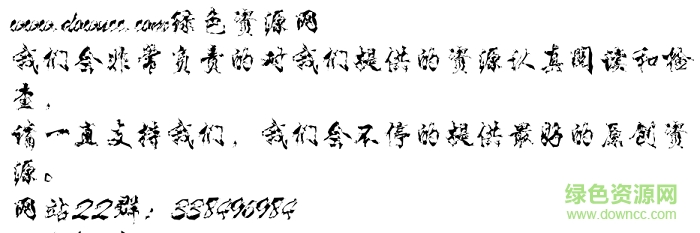 www.downcc.com绿色资源网
我们会非常负责的对我们提供的资源认真阅读和检
查，
请一直支持我们，我们会不停的提供最好的原创资
源。
网站22群：338490984
绿色资源网
www.downcc.com